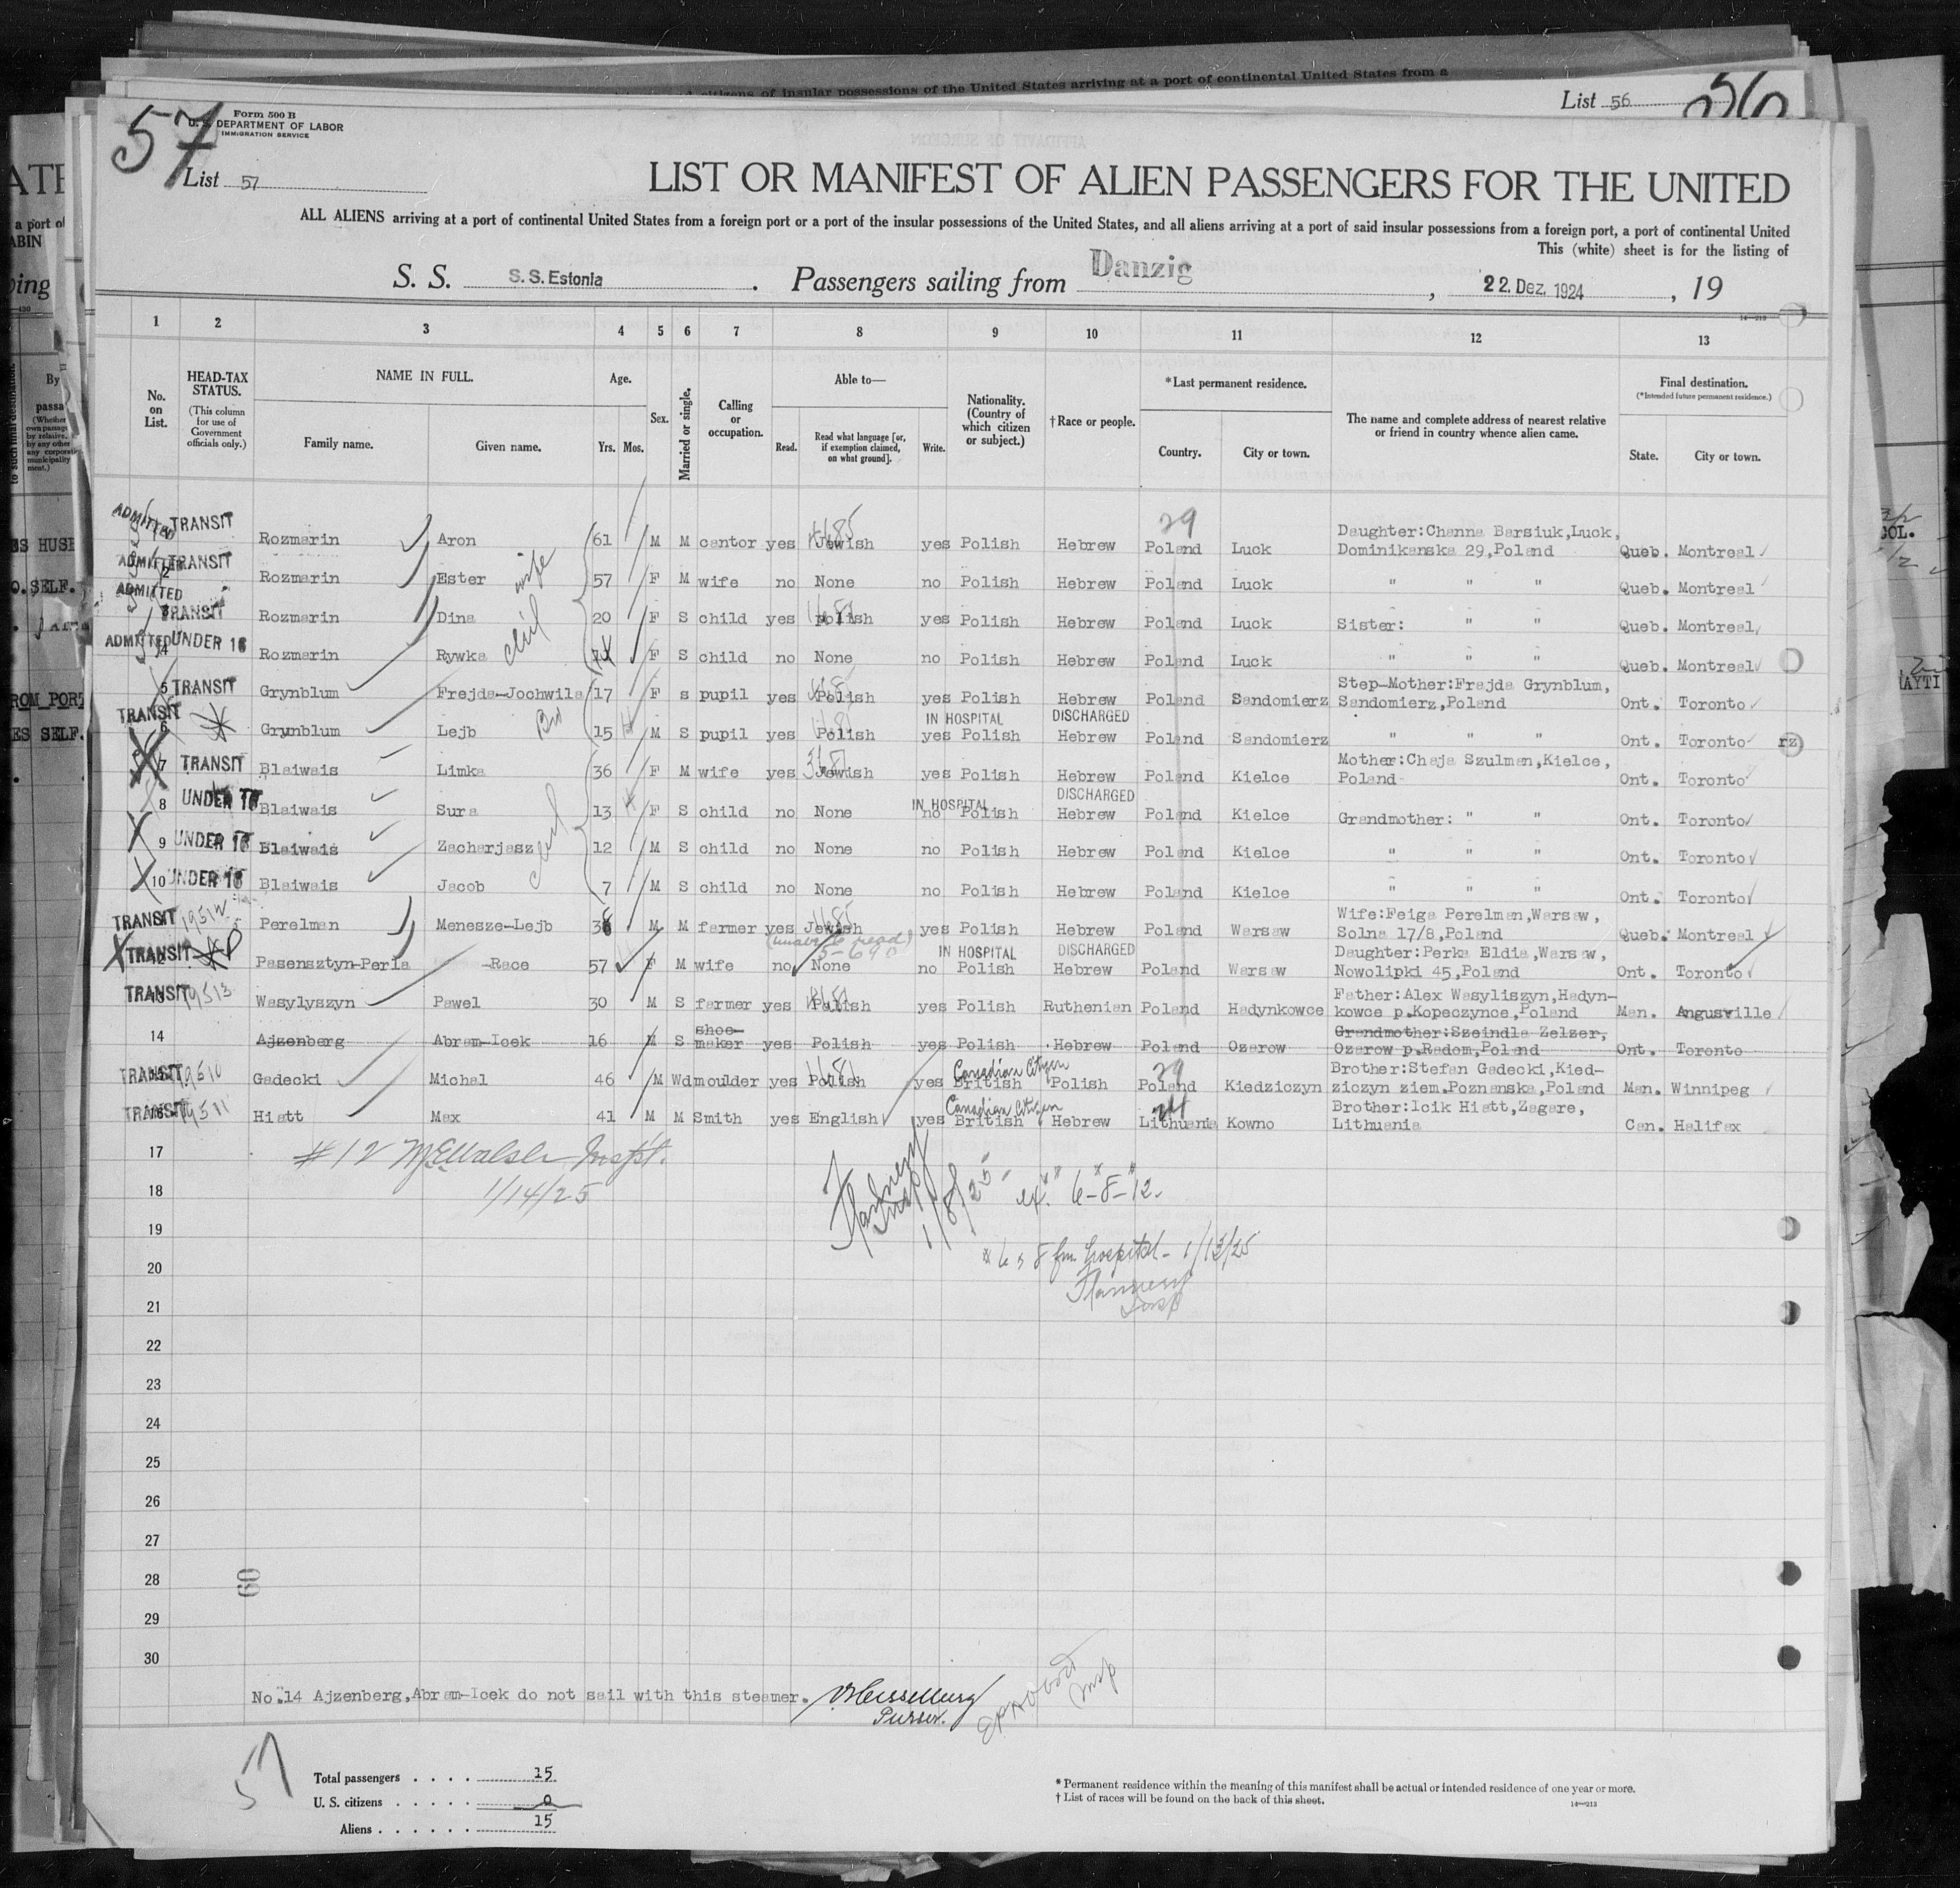 citizens of insular possessions of the United States arriving at a port of continental United States from a
List 56
56
57
Form 500 B
U. S. DEPARTMENT OF LABOR
IMMIGRATION SERVICE
List 57
LIST OR MANIFEST OF ALIEN PASSENGERS FOR THE UNITED
ALL ALIENS arriving at a port of continental United States from a foreign port or a port of the insular possessions of the United States, and all aliens arriving at a port of said insular possessions from a foreign port, a port of continental United
This (white) sheet is for the listing of
S. S. S.S.Estonia. Passengers sailing from Danzig, 22. Dez. 1924, 19
1 2 3 4 5 6 7 8 9 10 11 12 13
No. on List.
HEAD-TAX STATUS.
(This column for use of Government officials only.)
NAME IN FULL.
Family name. Given name.
Age.
Yrs. Mos.
Sex.
Married or single.
Calling or occupation.
Able to—
Read. Read what language [or, if exemption claimed, on what ground]. Write.
Nationality. (Country of which citizen or subject.)
†Race or people.
*Last permanent residence.
Country. City or town.
The name and complete address of nearest relative or friend in country whence alien came.
Final destination.
(*Intended future permanent residence.)
State. City or town.
ADMITTED TRANSIT Rozmarin Aron 61 M M cantor yes Jewish yes Polish Hebrew Poland Luck Daughter:Channa Barsiuk,Luck, Dominikanska 29,Poland Queb. Montreal
29
ADMITTED TRANSIT 2 Rozmarin Ester wife 57 F M wife no None no Polish Hebrew Poland Luck " " " Queb. Montreal
ADMITTED TRANSIT Rozmarin Dina 20 F S child yes Polish yes Polish Hebrew Poland Luck Sister: " " Queb. Montreal
ADMITTED UNDER 16 4 Rozmarin Rywka F S child no None no Polish Hebrew Poland Luck " " " Queb. Montreal
5 TRANSIT Grynblum Frejda-Jochwila 17 F s pupil yes Polish yes Polish Hebrew Poland Sandomierz Step-Mother:Frajda Grynblum, Sandomierz,Poland Ont. Toronto
IN HOSPITAL DISCHARGED
TRANSIT 6 Grynblum Lejb 15 M S pupil yes Polish yes Polish Hebrew Poland Sandomierz " " " Ont. Toronto
7 TRANSIT Blaiwais Limka 36 F M wife yes Jewish yes Polish Hebrew Poland Kielce Mother:Chaja Szulman,Kielce, Poland Ont. Toronto
IN HOSPITAL DISCHARGED
8 UNDER 16 Blaiwais Sura 13 F S child no None no Polish Hebrew Poland Kielce Grandmother: " " Ont. Toronto
9 UNDER 16 Blaiwais Zacharjasz 12 M S child no None no Polish Hebrew Poland Kielce " " " Ont. Toronto
10 UNDER 16 Blaiwais Jacob 7 M S child no None no Polish Hebrew Poland Kielce " " " Ont. Toronto
TRANSIT Perelman Menesze-Lejb 38 M M farmer yes Jewish yes Polish Hebrew Poland Warsaw Wife:Feiga Perelman,Warsaw, Solna 17/8,Poland Queb. Montreal
(unable to read)
IN HOSPITAL DISCHARGED
TRANSIT Pasensztyn-Perla -Race 57 F M wife no None no Polish Hebrew Poland Warsaw Daughter:Perka Eldia,Warsaw, Nowolipki 45,Poland Ont. Toronto
TRANSIT 19513 Wasylyszyn Pawel 30 M S farmer yes Polish yes Polish Ruthenian Poland Hadynkowce Father:Alex Wasyliszyn,Hadyn-kowce p.Kopeczynce,Poland Man. Angusville
14 Ajzenberg Abram-Icek 16 M S shoe-maker yes Polish yes Polish Hebrew Poland Ozarow Grandmother:Szeindla Zelzer, Ozarow p.Radom,Poland Ont. Toronto
TRANSIT 19510 Gadecki Michal 46 M Wd moulder yes Polish yes British Canadian Citizen Polish Poland 29 Kiedziczyn Brother:Stefan Gadecki,Kied-ziczyn ziem.Poznanska,Poland Man. Winnipeg
TRANSIT 19511 Hiatt Max 41 M M Smith yes English yes British Canadian Citizen Hebrew Lithuania Kowno Brother:Icik Hiatt,Zagare, Lithuania Can. Halifax
17
#12 McWalsh Inspt.
1/14/25
18
Flannery Insp
1/8/25 ex. 6-8-12.
19
#6 & 8 fm. hospital - 1/13/25
Flannery
Insp
20
21
22
23
24
25
26
27
28
60
29
30
No.14 Ajzenberg,Abram-Icek do not sail with this steamer.
Purser.
Insp
57
Total passengers . . . . 15
U. S. citizens . . . . . 0
Aliens . . . . . . 15
* Permanent residence within the meaning of this manifest shall be actual or intended residence of one year or more.
† List of races will be found on the back of this sheet.
14—213